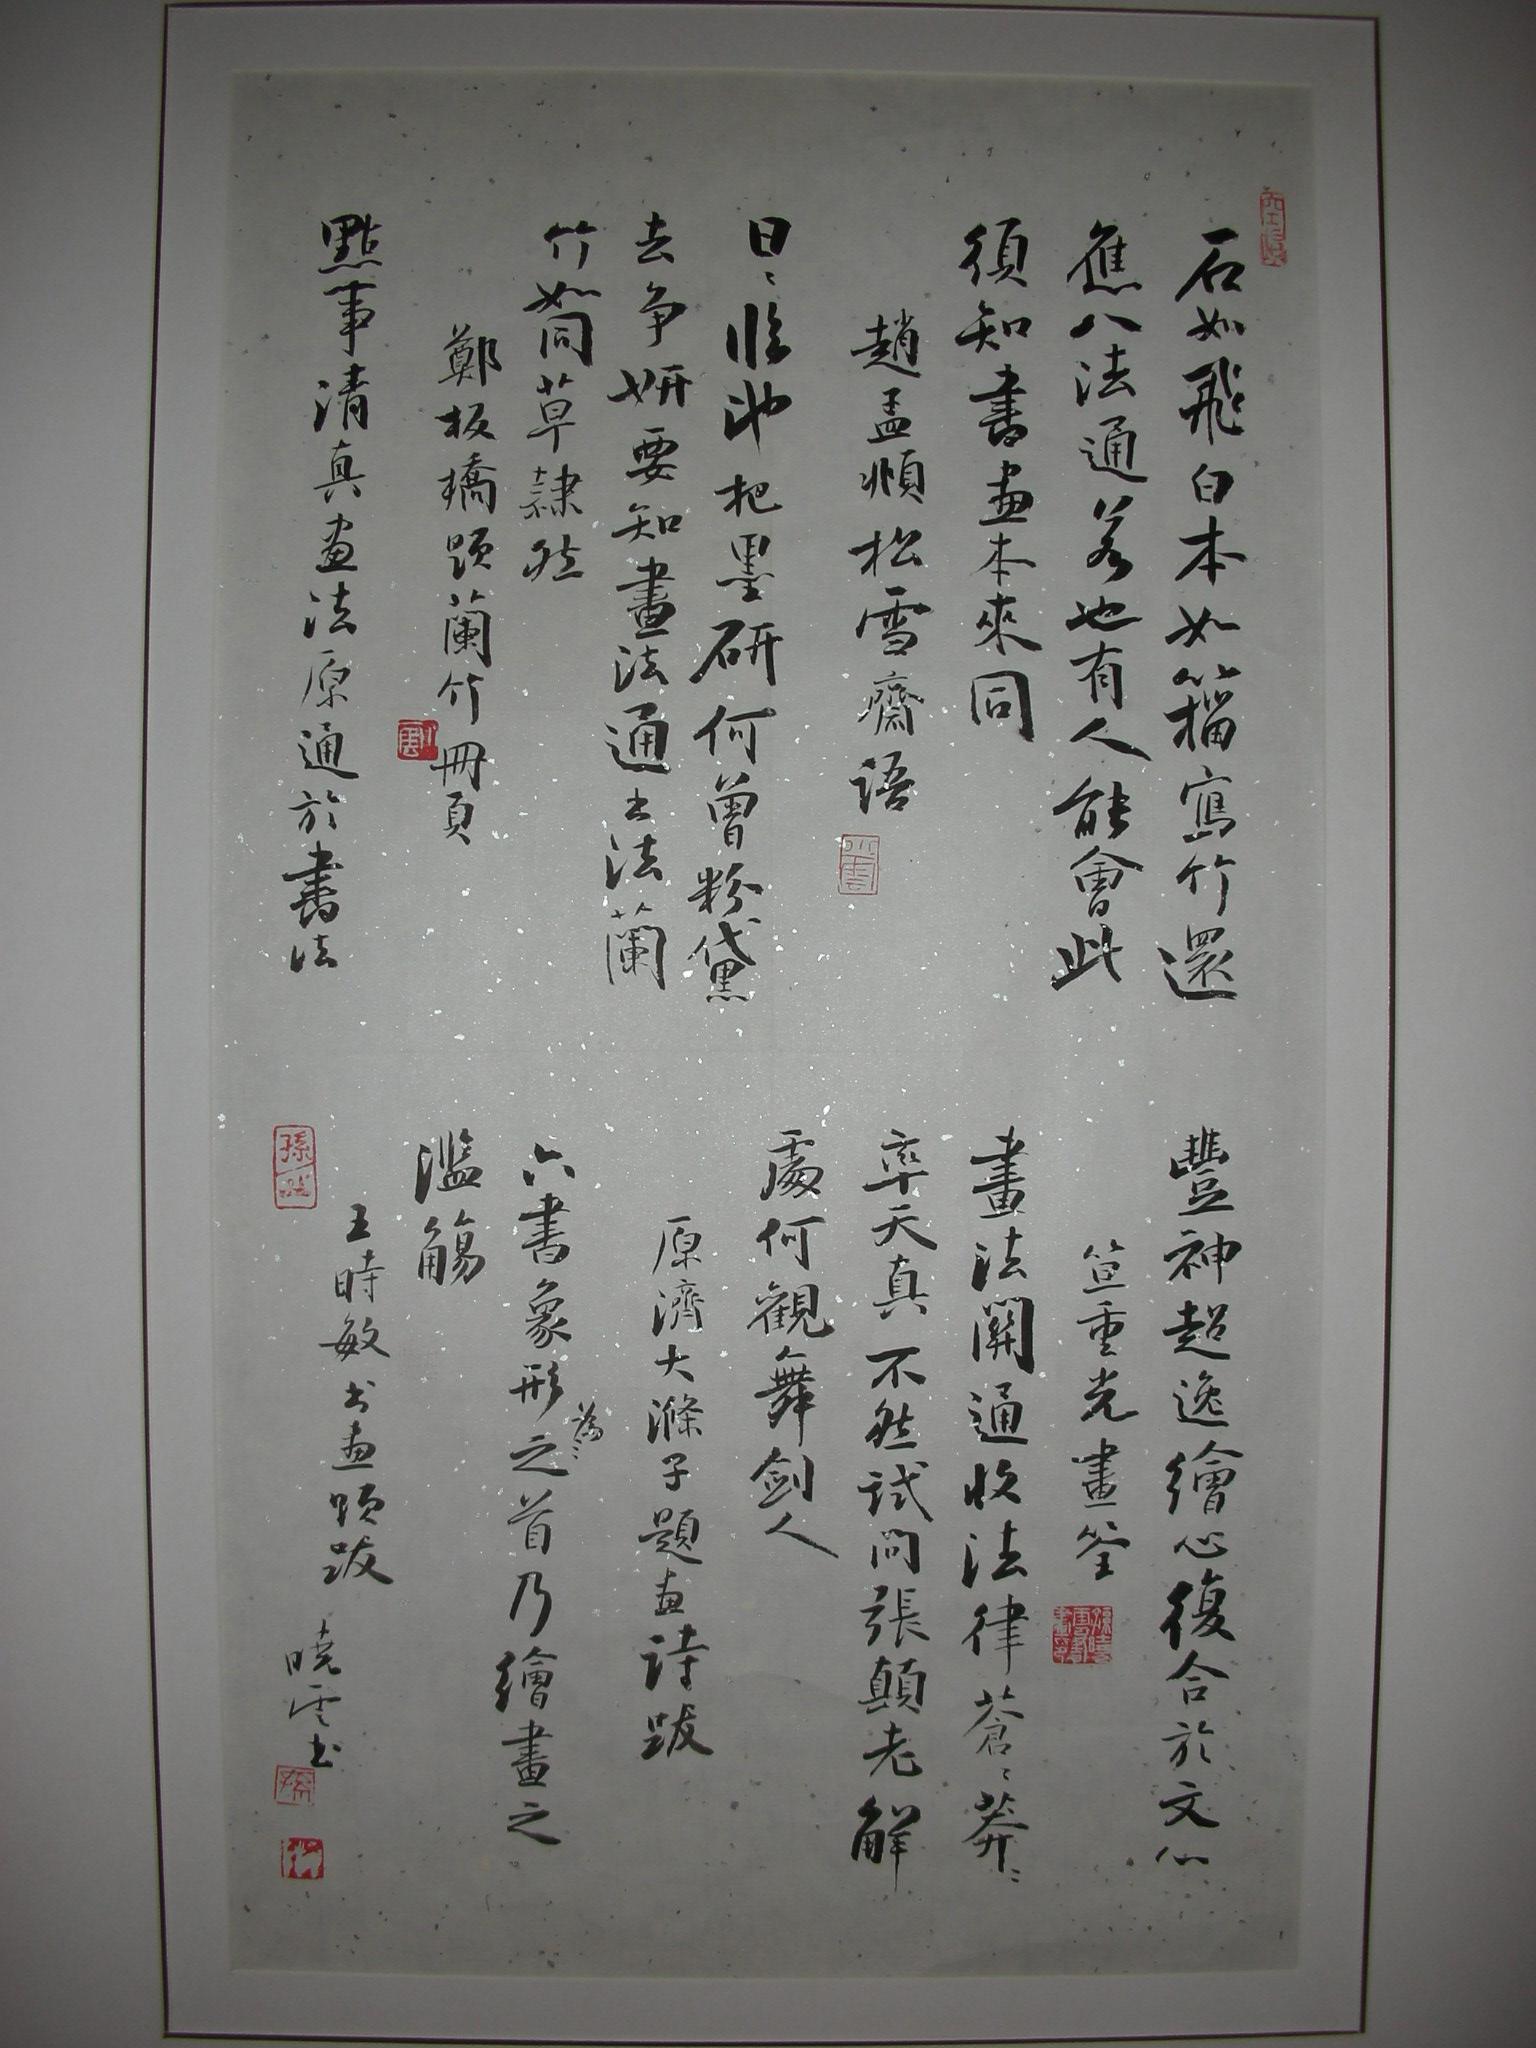 石如飛白本如籀寫竹還
應八法通若也有人能會此
須知書画本來同
趙孟頫松雪齋語
日〻臨池把墨研何曾粉黛
去争妍要知畫法通书法蘭
竹如同草隸然
鄭板橋題蘭竹冊頁
點事清真画法原通於書法
豐神超逸繪心復合於文心
笪重光畫筌
畫法關通收法律蒼〻莽〻
率天真不然試問張顛老解
處何觀舞劍人
原濟大滌子題画詩跋
六書象形之首乃繪畫之
為〻
濫觴
王時敏书画題跋
曉雲书